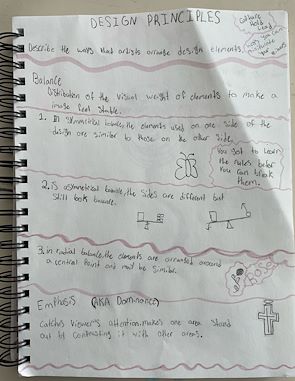 DESIGN PRINCIPLES
Describe the ways that artists arrange design elements.
Balance
Distribution of the visual weight of elements to make a
image feel stable.
1. In symmetrical balance, the elements used on one side of the
design are similar to those on the other side.
You got to learn
the rules befor
you can break
them.
2. is asymmetrical balance, the sides are different but
still look balance.
3. in radial balance, the elements are arranged around
a central Point and must be similar.
Emphasis (AKA Dominance)
Catches viewer's attention. makes one area stand
out by contrasting it with other areas.